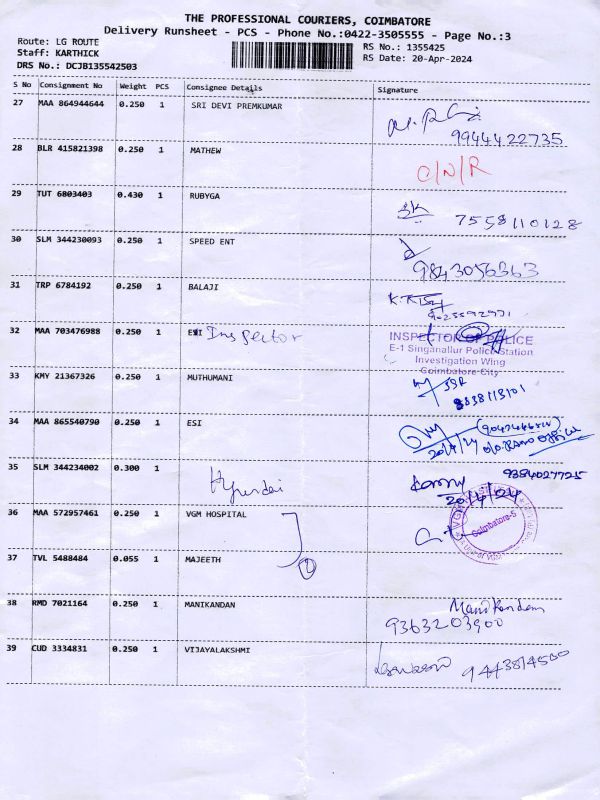 THE PROFESSIONAL COURIERS, COIMBATORE
Delivery Runsheet - PCS - Phone No.:0422-3505555 - Page No.:3
Route: LG ROUTE
Staff: KARTHICK
DRS No.: DCJB135542503
RS No.: 1355425
RS Date: 20-Apr-2024
S No Consignment No Weight PCS Consignee Details Signature
27 MAA 864944644 0.250 1 SRI DEVI PREMKUMAR
9944422735
28 BLR 415821398 0.250 1 MATHEW C/N/R
29 TUT 6803403 0.430 1 RUBYGA 7558110128
30 SLM 344230093 0.250 1 SPEED ENT
9843056363
31 TRP 6784192 0.250 1 BALAJI
32 MAA 703476988 0.250 1 Inspector
INSPECTOR OF POLICE
E-1 Singanallur Police Station
Investigation Wing
Coimbatore City
33 KMY 21367326 0.250 1 MUTHUMANI
34 MAA 865540790 0.250 1 ESI
35 SLM 344234002 0.300 1 Hyundai 9384027725
20/4/24
36 MAA 572957461 0.250 1 VGM HOSPITAL
Coimbatore-5
37 TVL 5488484 0.055 1 MAJEETH
38 RMD 7021164 0.250 1 MANIKANDAN Manikandan
9363203900
39 CUD 3334831 0.250 1 VIJAYALAKSHMI 9443814500